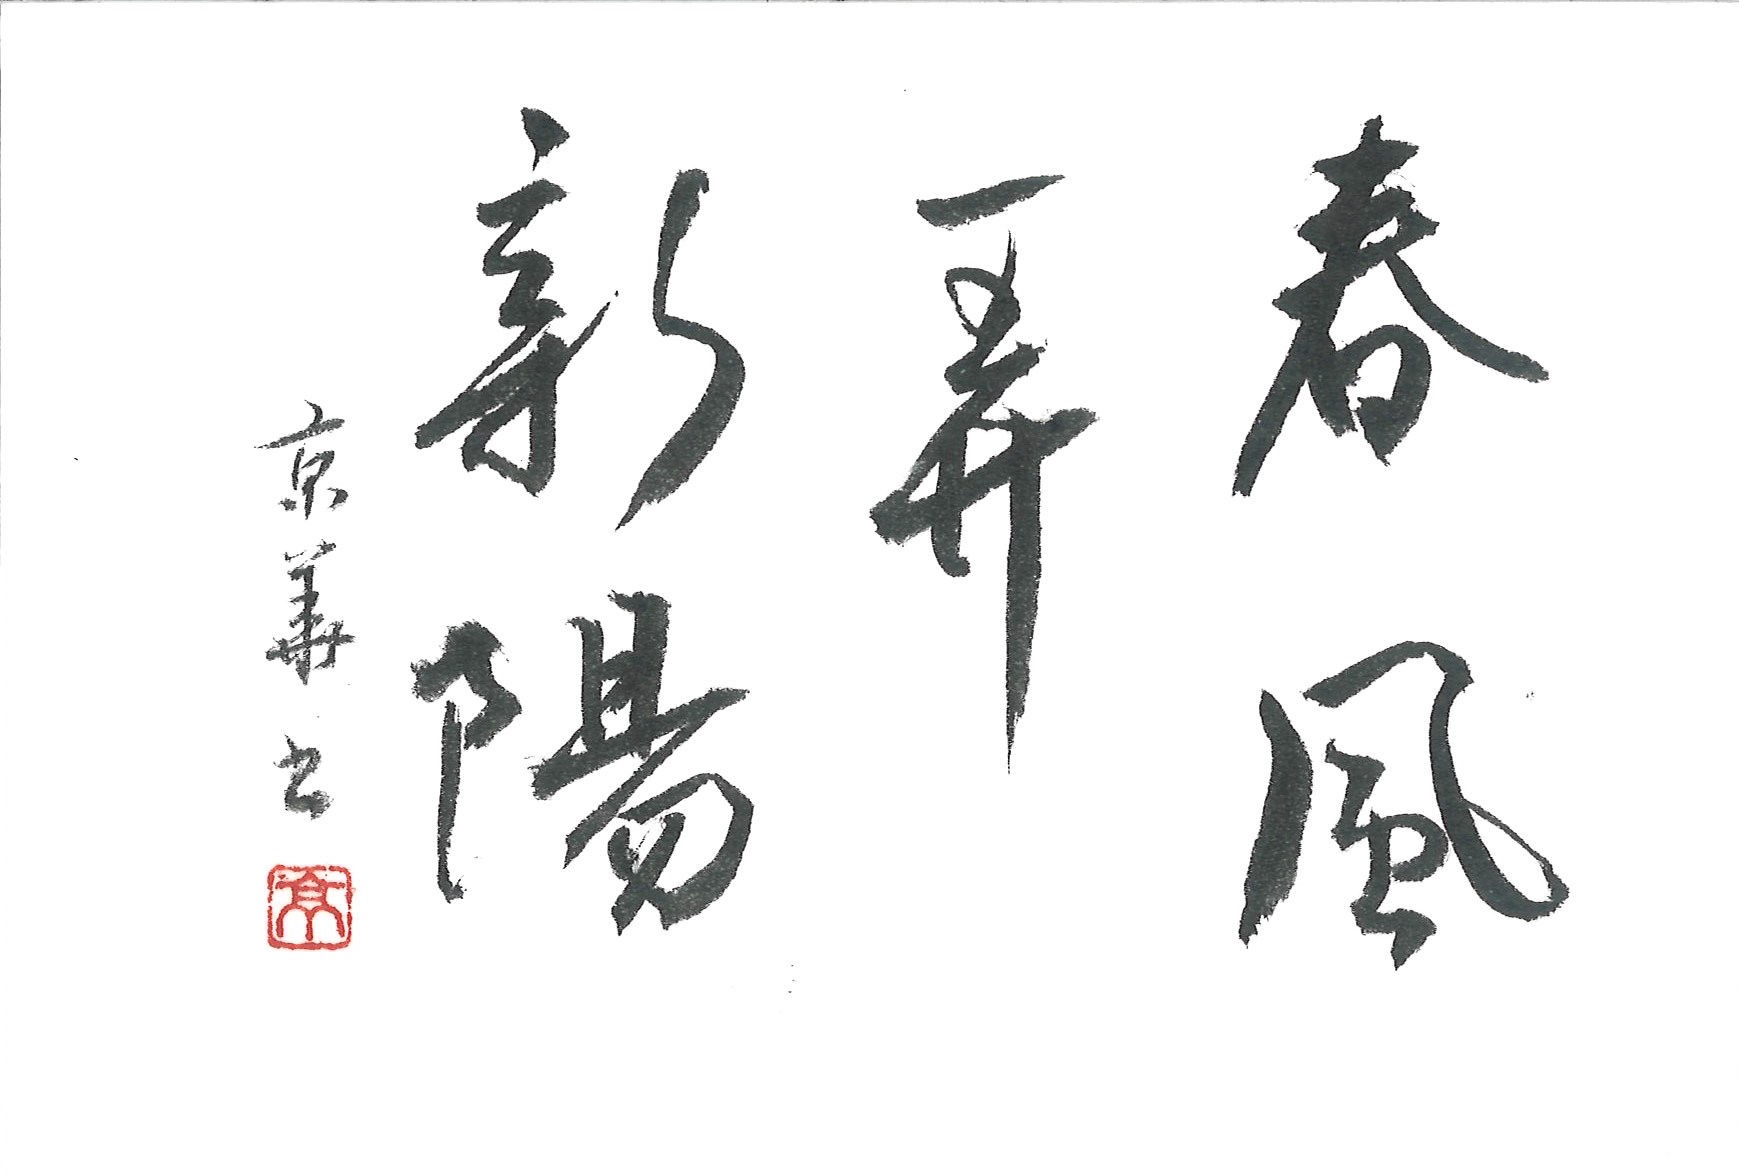 春風
弄
新陽
京華書
京